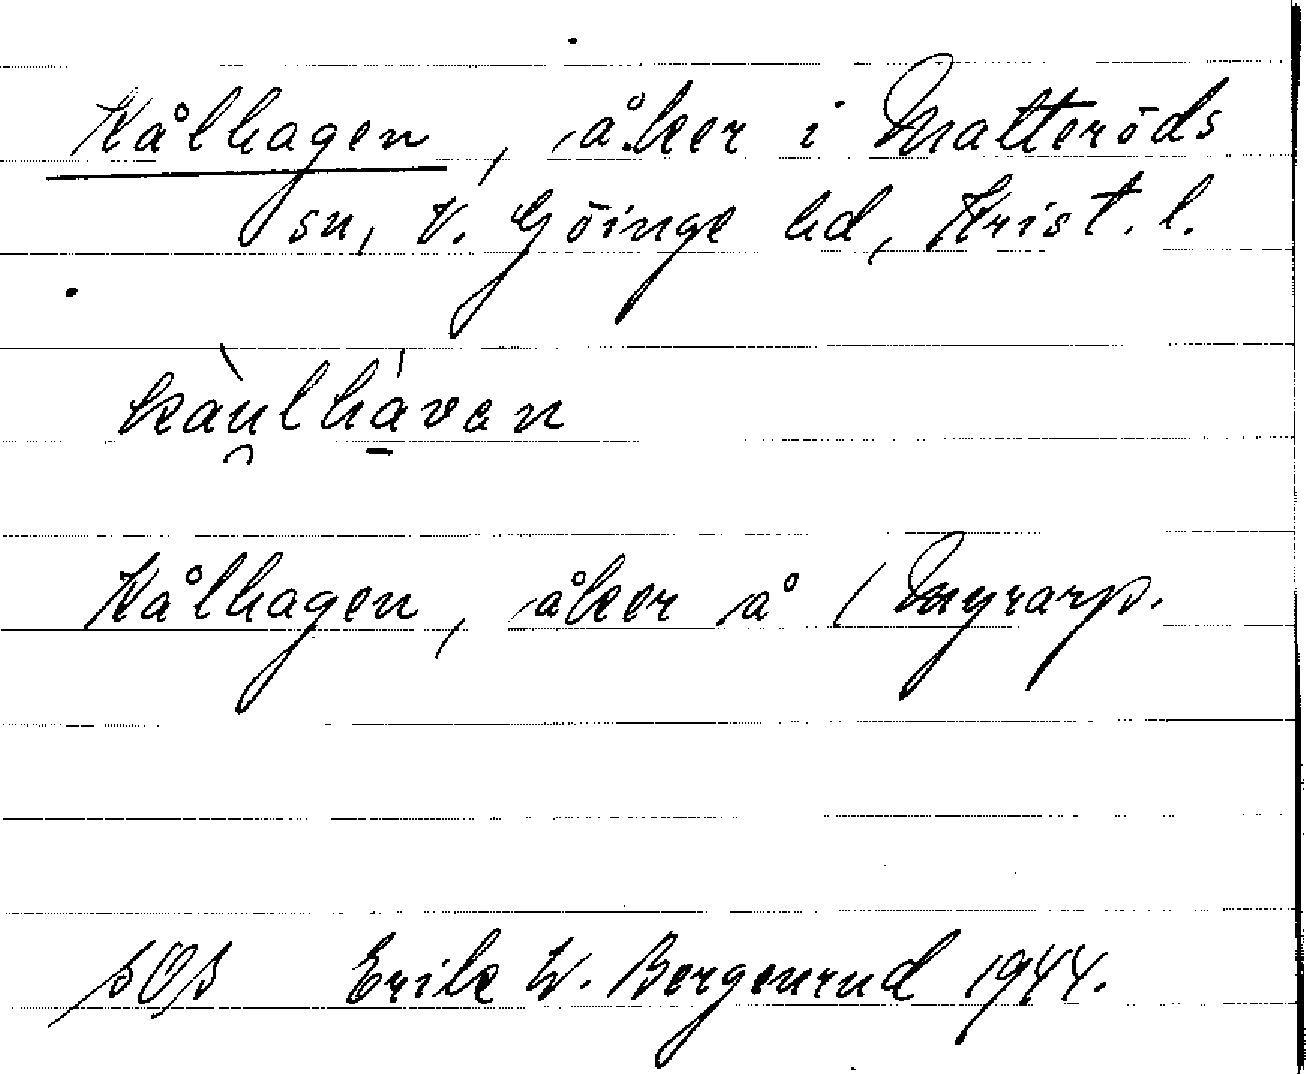 Kålhagen, åker i Matteröds
sn, V. Göinge hd, Krist. l.
kàu̯lhá̱van
Kålhagen, åker å Myrarp.
SOS Erik W. Bergenrud 1944.